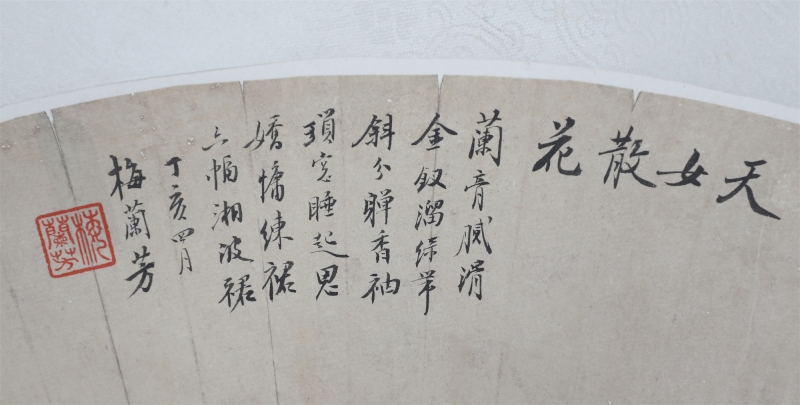 天女散花
蘭膏膩滑
金釵溜綠雲
斜分嚲香袖
瑣窗睡起思
嬌慵練裙
六幅湘波裙
丁亥四月
梅蘭芳
梅蘭芳